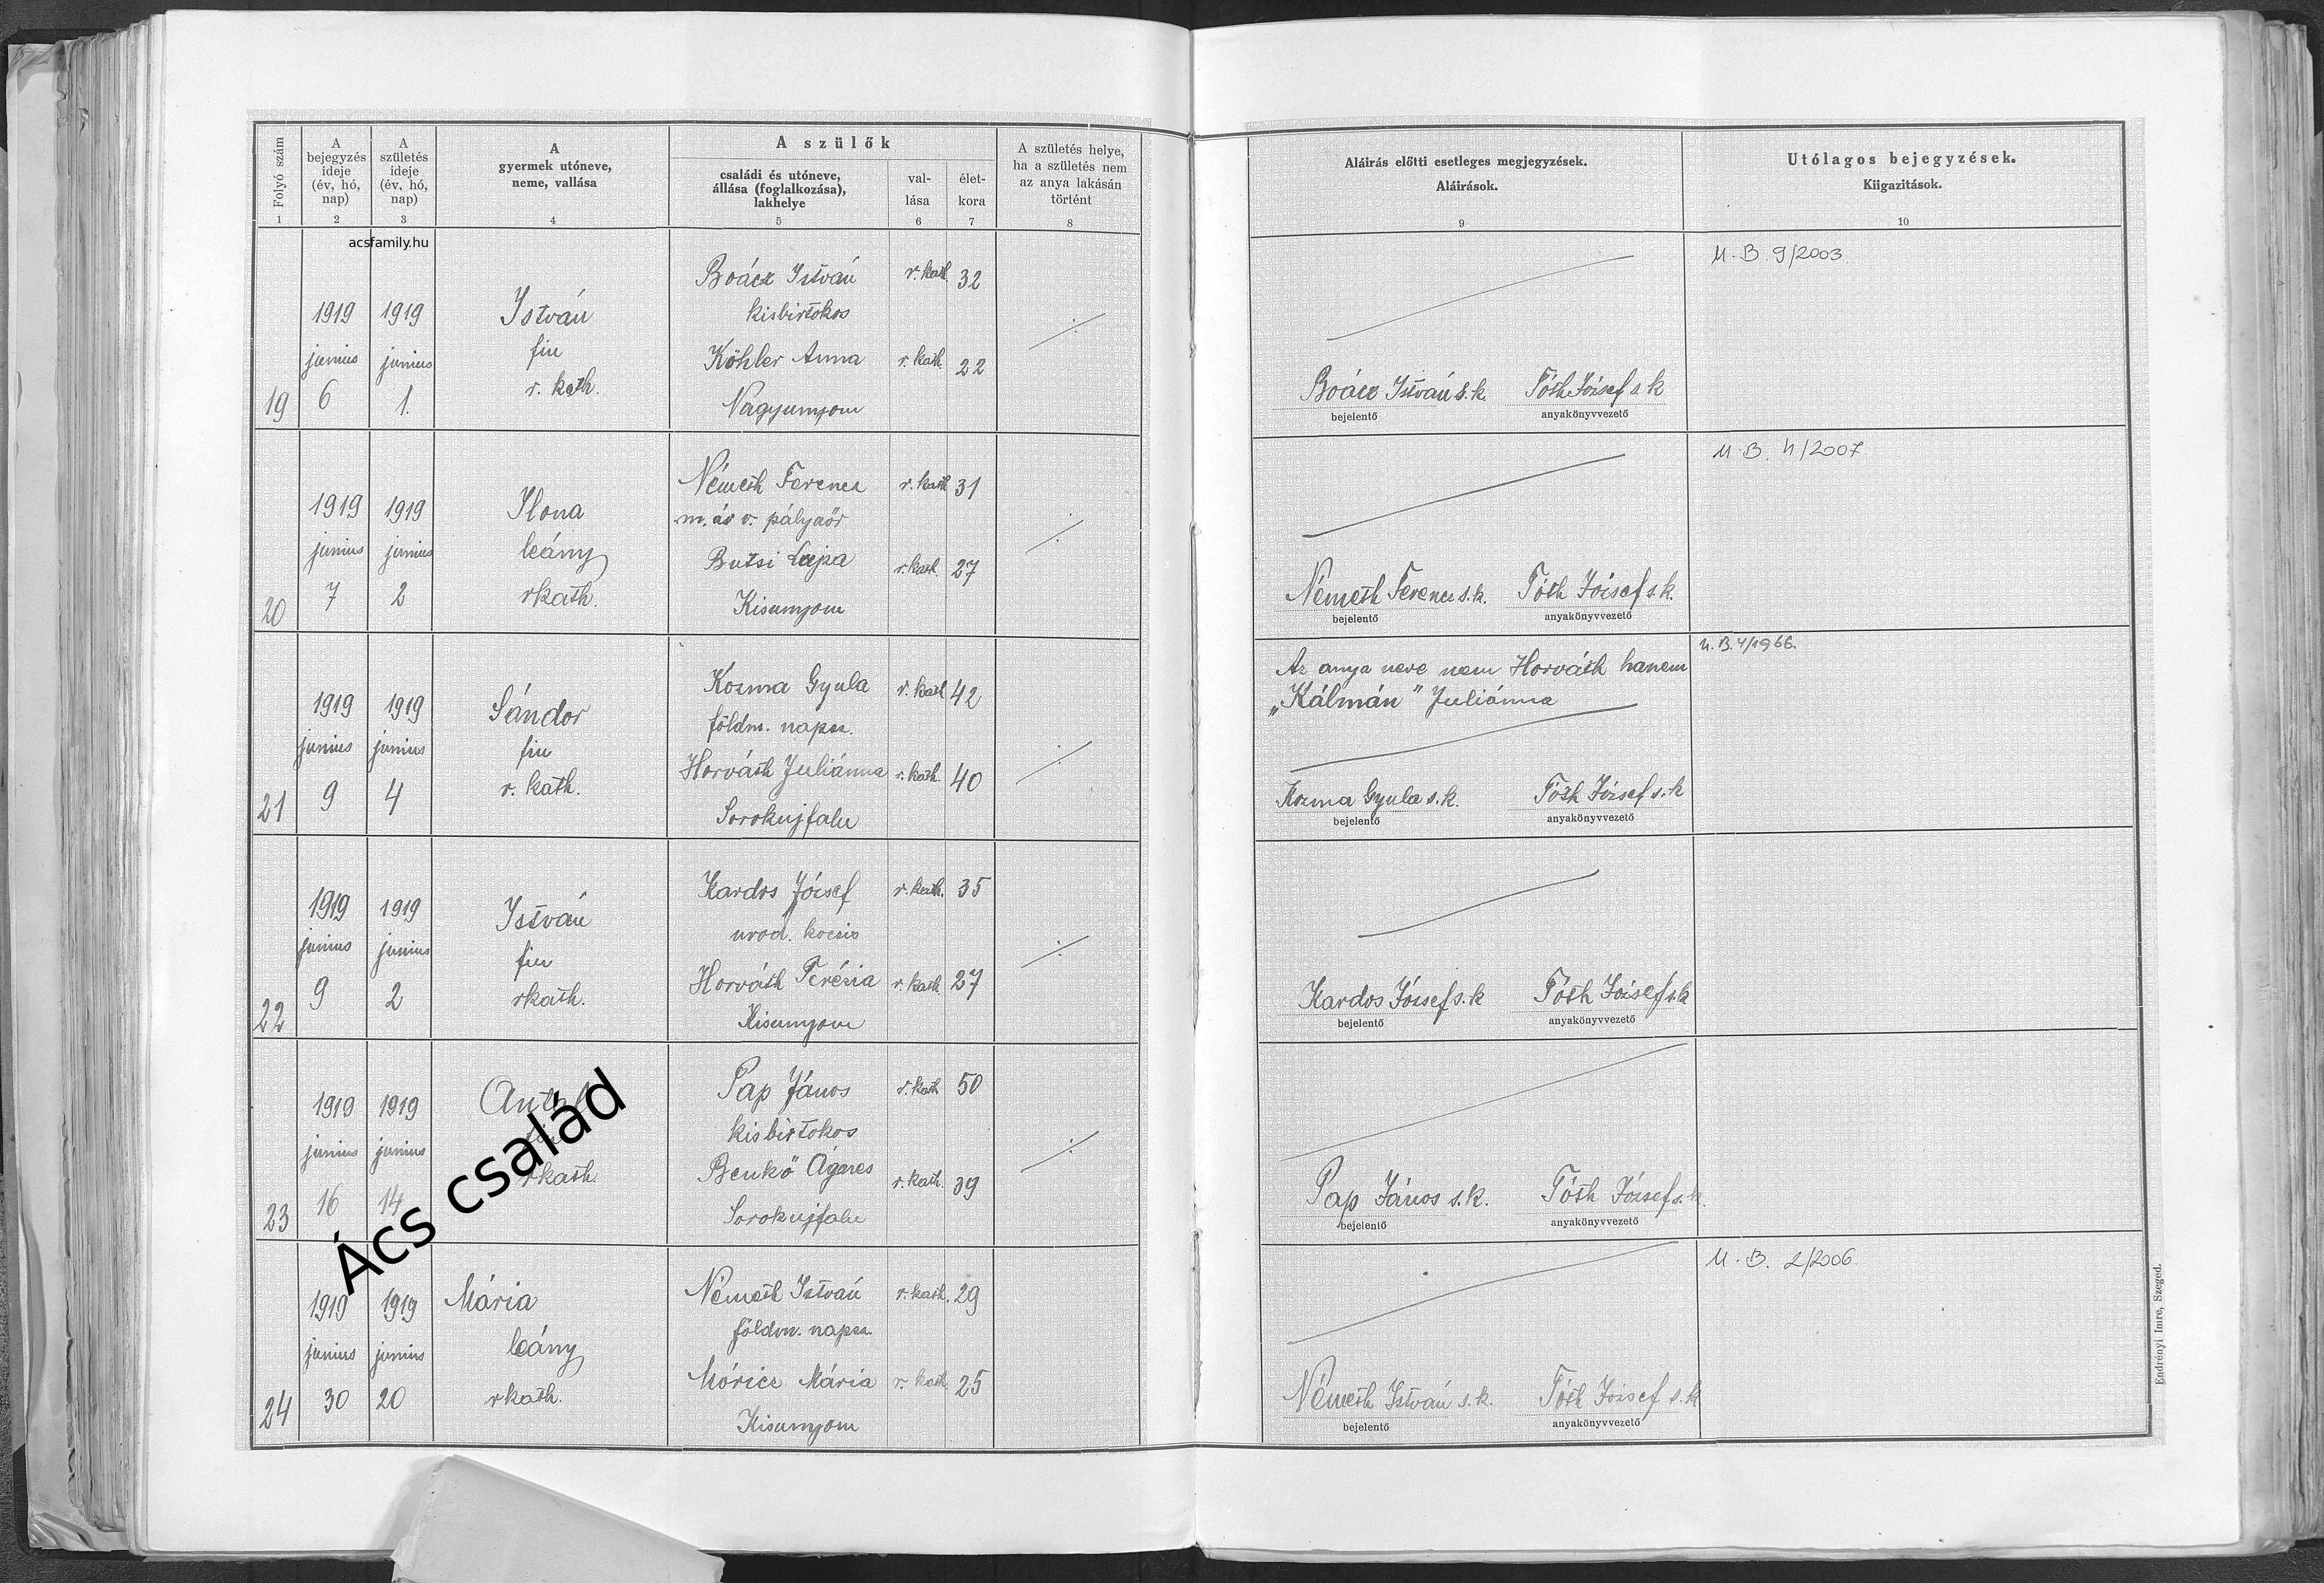 Folyó szám
1
A
bejegyzés
ideje
(év, hó,
nap)
2
A
születés
ideje
(év, hó,
nap)
3
A
gyermek utóneve,
neme, vallása
4
A szülők
családi és utóneve,
állása (foglalkozása),
lakhelye
5
val-
lása
6
élet-
kora
7
A születés helye,
ha a születés nem
az anya lakásán
történt
8
Aláirás előtti esetleges megjegyzések.
Aláirások.
9
Utólagos bejegyzések.
Kiigazitások.
10
acsfamily.hu
19
1919
junius
6
1919
junius
1.
István
fiu
r. kath.
Boácz István
kisbirtokos
Köhler Anna
Nagyunyom
r. kath. 32
r. kath. 22
Boácz István s. k.
bejelentő
Tóth József s. k
anyakönyvvezető
U. B. 9/2003.
20
1919
junius
7
1919
junius
2
Ilona
leány
rkath.
Németh Ferencz
m. áv v. pályaőr
Butsi
Kisunyom
r. kath 31
r. kath. 27
Németh Ferencz s. k.
bejelentő
Tóth József s. k.
anyakönyvvezető
U. B. 4/2007
21
1919
junius
9
1919
junius
4
Sándor
fiu
r. kath.
Kozma Gyula
földm. napsz.
Horváth Juliánna
Sorokujfalu
r. kath 42
r. kath. 40
Az anya neve nem Horváth hanem
„Kálmán" Juliánna
Kozma Gyula s. k.
bejelentő
Tóth József s. k
anyakönyvvezető
U. B. 4/1966.
22
1919
junius
9
1919
junius
2
István
fiu
rkath.
Kardos József
urod. kocsis
Horváth Terézia
Kisunyom
r. kath. 35
r. kath 27
Kardos József s. k
bejelentő
Tóth József s. k
anyakönyvvezető
23
1919
junius
16
1919
junius
14
Antal
fiu
rkath.
Pap János
kisbirtokos
Benkő Ágnes
Sorokujfalu
r. kath 50
r. kath. 39
Pap János s. k.
bejelentő
Tóth József s. k.
anyakönyvvezető
Ács család
24
1919
junius
30
1919
junius
20
Mária
leány
rkath.
Németh István
földm. napsz.
Móricz Mária
Kisunyom
r. kath. 29
r. kath. 25
Németh István s. k.
bejelentő
Tóth József s. k
anyakönyvvezető
U. B. 2/2006.
Endrényi Imre, Szeged.